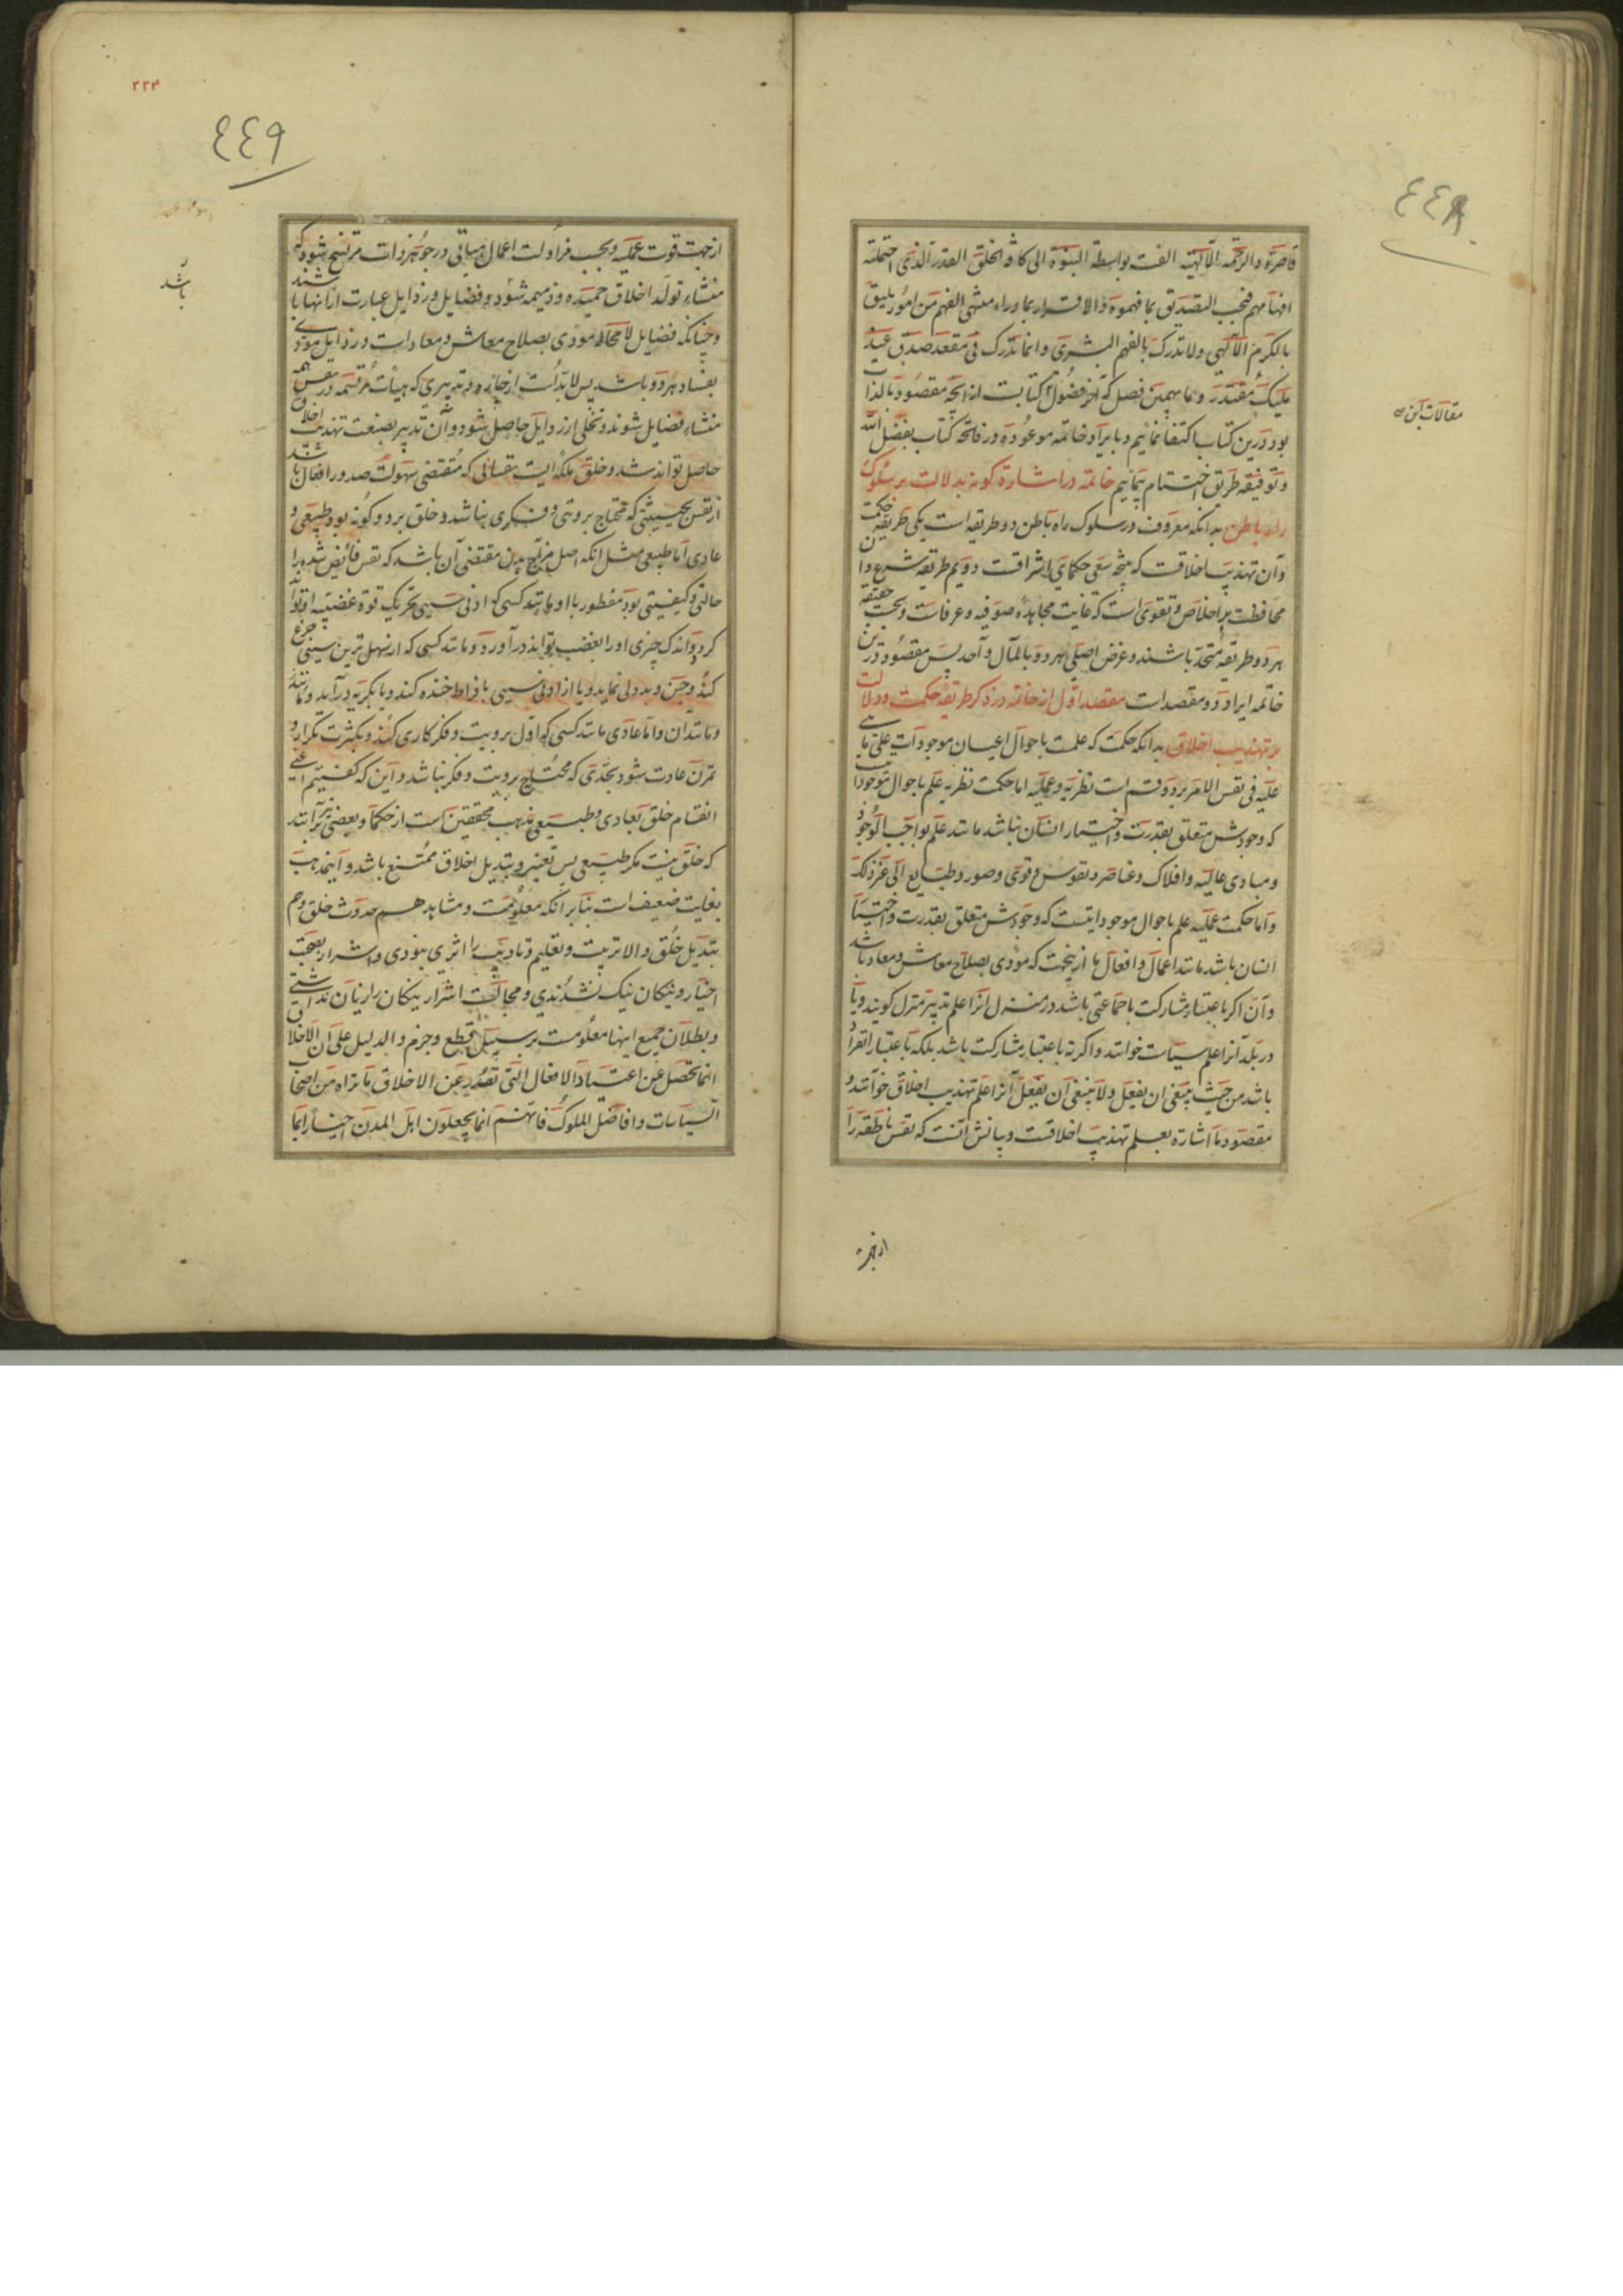 ٤٤٨
قاصرة والرحمة الآلهية الفت بواسطة النبوة الى كافة الخلق القدر الذى احتملته
افهامهم فيجب التصديق بما فهموه والاقرار بما وراء منتهى الفهم من امور يليق
بالكرم الآلهى ولا تدرك بالفهم البشرى وانما تدرك فى مقعد صدق عند
مليك مقتدر وما بهمين فصل كه آخر فضول كتابست از آنچه مقصود بالذات
بود درين كتاب اكتفا نمائيم و بايراد خاتمه موعوده در فاتحه كتاب بفضل الله
وتوفيقه طريق اختتام پيمائيم خاتمه در اشاره كونه بدلالت بر سلوك
راه باطن بدانكه معروف در سلوك راه باطن دو طريقه است يكى طريقه حكمت
وآن تهذيب اخلاقست كه نتيجه سعى حكماى اشراقست دويم طريقه شرع وآن
محافظت بر اخلاص و تقوى است كه غايت مجاهده صوفيه و عرفاست وبحسب حقيقه
هر دو طريقه متحد باشند و غرض اصلى هر دو بالمآل واحد پس مقصود درين
خاتمه ايراد دو مقصد است مقصد اول از خاتمه در ذكر طريقه حكمت ودلالت
بر تهذيب اخلاق بدانكه حكمت كه علمست باحوال اعيان موجودات على ما هى
عليه فى نفس الامر بر دو قسم است نظريه وعمليه اما حكمت نظريه علم باحوال موجوداتيست
كه وجودش متعلق بقدرت واختيار انسان نباشد مانند علم بواجب الوجود
ومبادى عاليه وافلاك وعناصر ونفوس وقوى وصور وطبايع الى غير ذلك
واما حكمت عمليه علم باحوال موجوداتيست كه وجودش متعلق بقدرت واختيار
انسان باشد مانند اعمال وافعال ما ازينجهت كه مؤدى بصلاح معاش ومعاد باشد
وآن اكر باعتبار مشاركت باجماعتى باشد در منزل آنرا علم تدبير منزل كويند ويا
در بلد آنرا علم سياست خوانند واكر نه باعتبار مشاركت باشد بلكه باعتبار انفراد
باشد من حيث ينبغى ان يفعل ولا ينبغى ان يفعل آنرا علم تهذيب اخلاق خوانند و
مقصود ما اشاره بعلم تهذيب اخلاقست وبيانش آنست كه نفس ناطقه را
از جهت
مقالات اين
٢٢٣
٤٤٩
از جهت قوت عمليه وبحسب مزاولت اعمال هيأتى در جوهر ذات مرتسخ شود كه
منشاء تولد اخلاق حميده وذميمه شود و فضايل ورذايل عبارت از آنها باشند
وچنانكه فضايل لا محاله مؤدى بصلاح معاش ومعاد است ورذايل مؤدى
بفساد هر دو باشد پس لابد است از چاره وتدبيرى كه هيئات مرتسمه در نفس همه
منشاء فضايل شوند وتخلى از رذايل حاصل شود وآن تدبير بصنعت تهذيب اخلاق
حاصل تواند شد وخلق ملكه ايست نفسانى كه مقتضى سهولت صدور افعال باشد
از نفس بحيثيتى كه محتاج برويتى وفكرى نباشد وخلق بر دو كونه بود طبيعى و
عادى اما طبيعى مثل آنكه اصل مزاج بدن مقتضى آن باشد كه نفس فائض شده را
حالتى وكيفيتى بود مفطور با او مانند كسى كه ادنى سببى تحريك قوه غضبيه او تواند
كرد واندك چيزى او را بغضب تواند در آورد ومانند كسى كه از سهل ترين سببى جزع
كند وجبن وبددلى نمايد ويا از ادنى سببى بافراط خنده كند ويا بكريه درآيد ومانند
ومانند آن واما عادى مانند كسى كه اول برويت وفكر كارى كند وبكثرت تكرار و
تمرن عادت شود بحدى كه محتاج برويت وفكر نباشد واين كه كفتيم اعنى
انقسام خلق بعادى وطبيعى مذهب محققين است از حكما وبعضى برآنند
كه خلق نيست مكر طبيعى پس تغيير وتبديل اخلاق ممتنع باشد واين مذهب
بغايت ضعيف است بنابر آنكه معلومست ومشاهد هم حدوث خلق وهم
تبديل خلق والا تربيت وتعليم وتاديب را اثرى نبودى واشرار بصحبت
اخيار ونيكان نيك نشدندى ومجالست اشرار نيكان را زيان نداشتى
وبطلان جميع اينها معلومست بر سبيل قطع وجزم والدليل على ان الاخلاق
انما تحصل عن اعتياد الافعال التى تصدر عن الاخلاق ما نراه من اصحاب
السياسات وافاضل الملوك فانهم انما يجعلون اهل المدن اخيارا بما
باشد